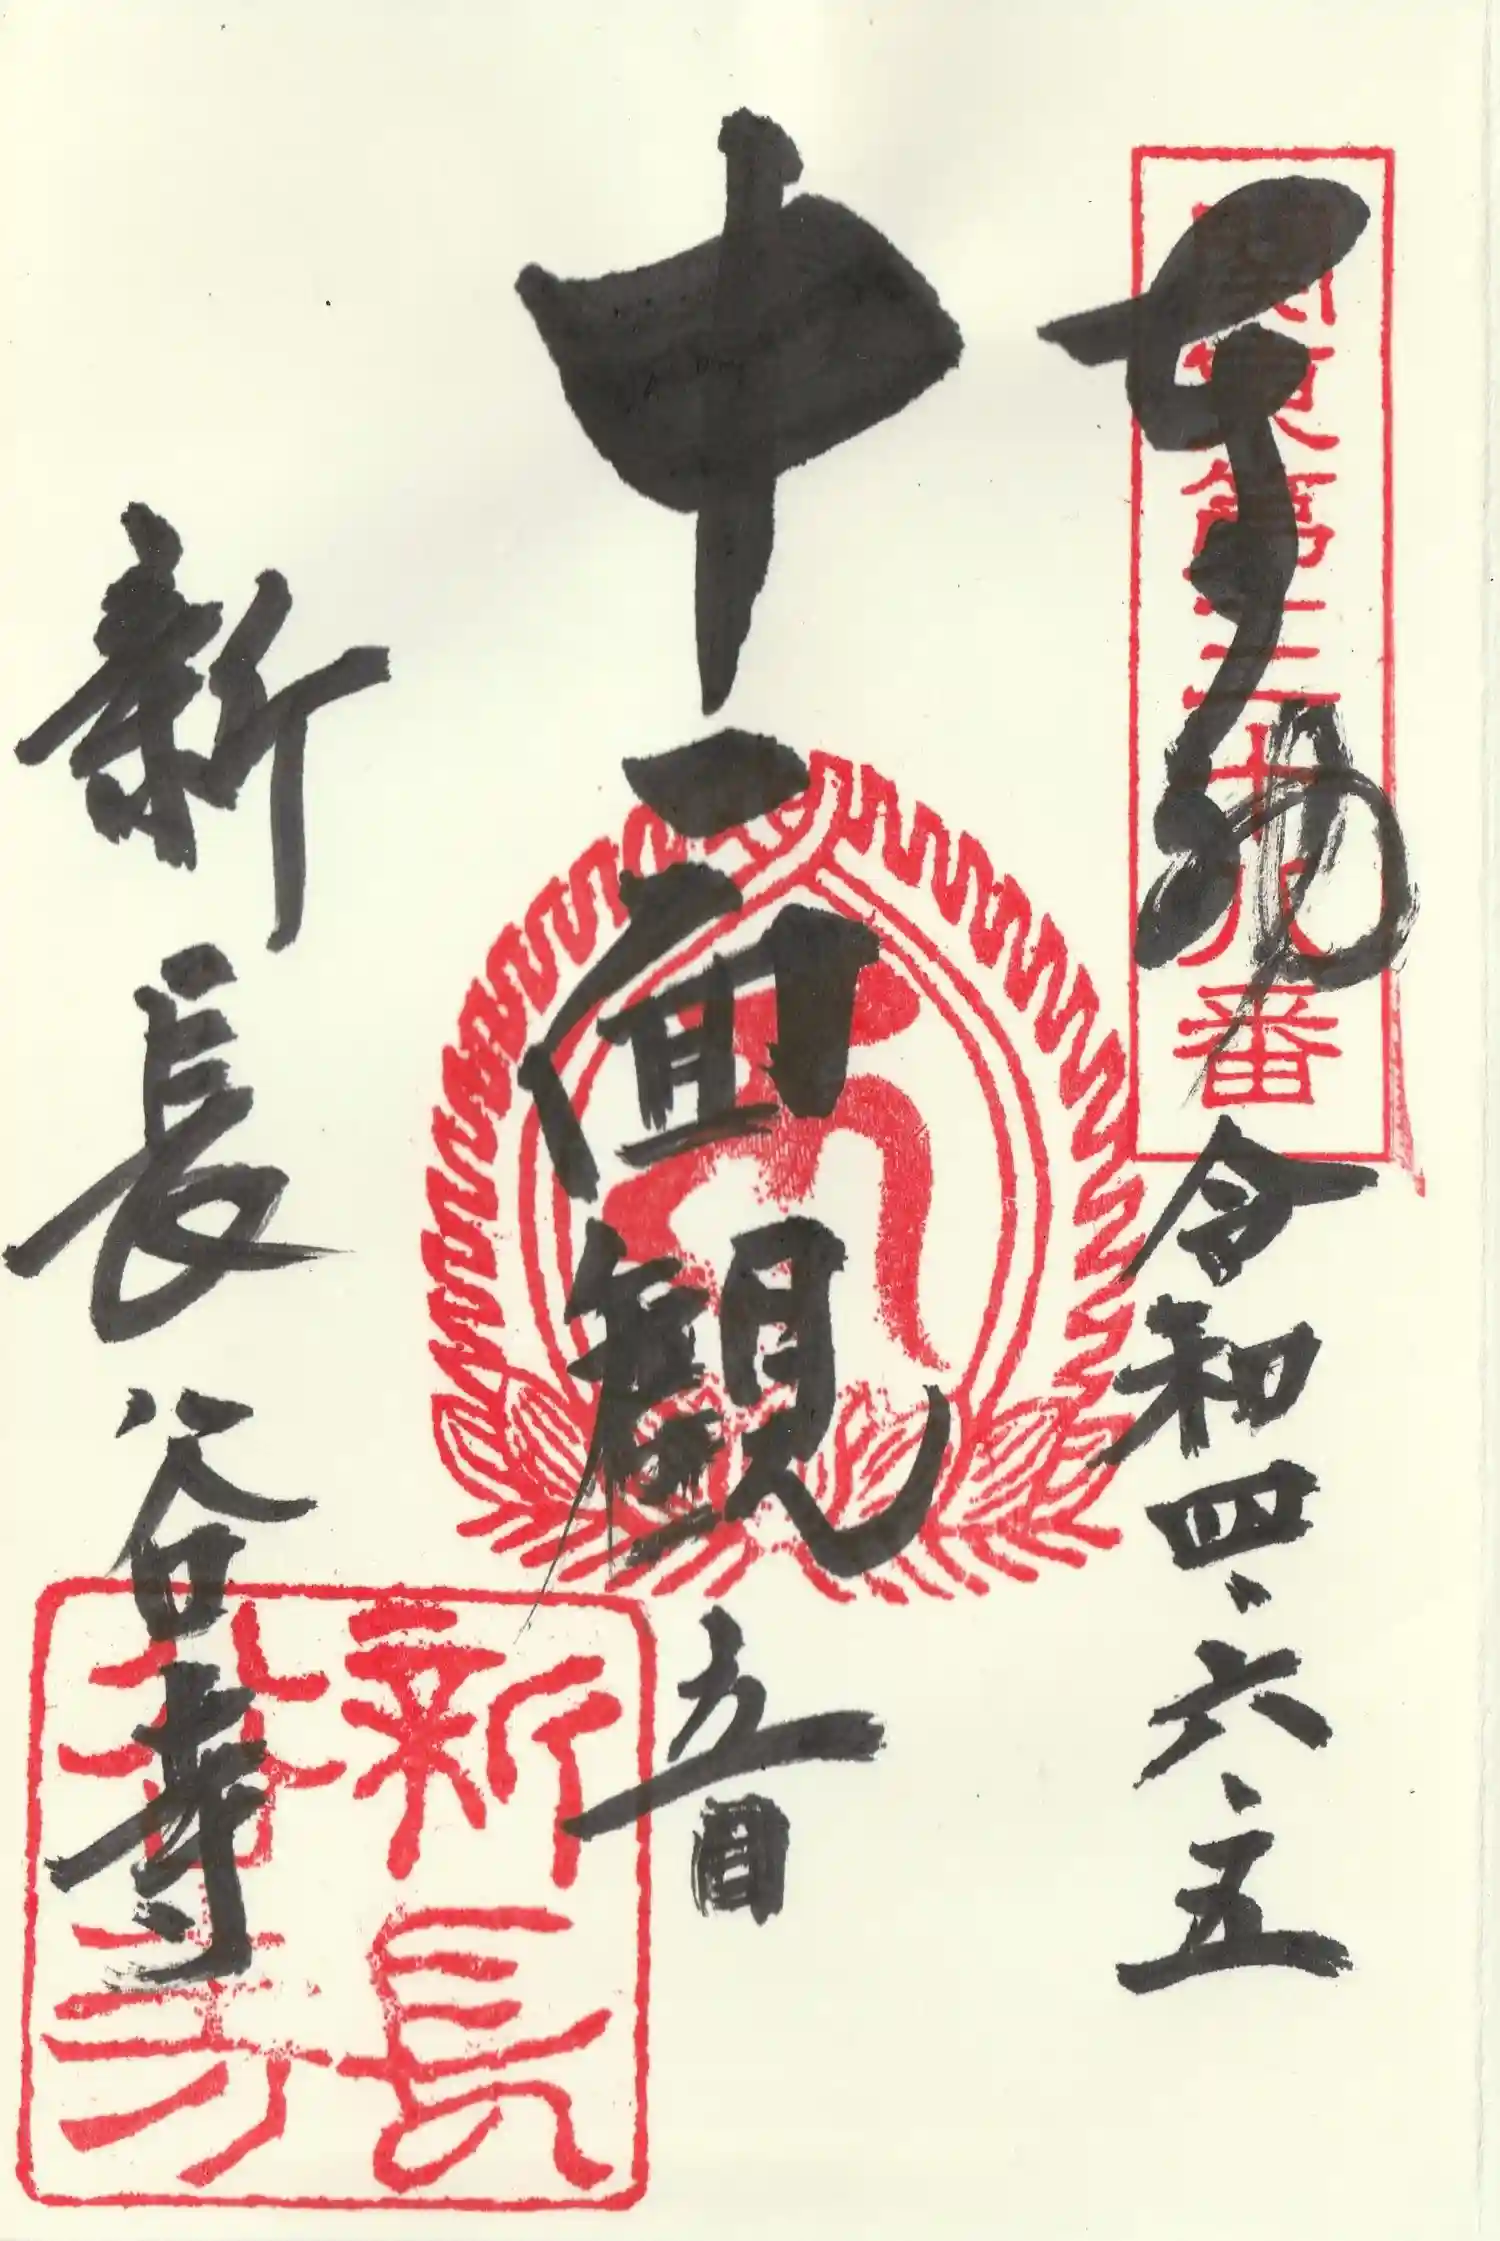 関東第三十八番
奉拝 令和四、六、五
十一面観音
新長谷寺
新長谷寺